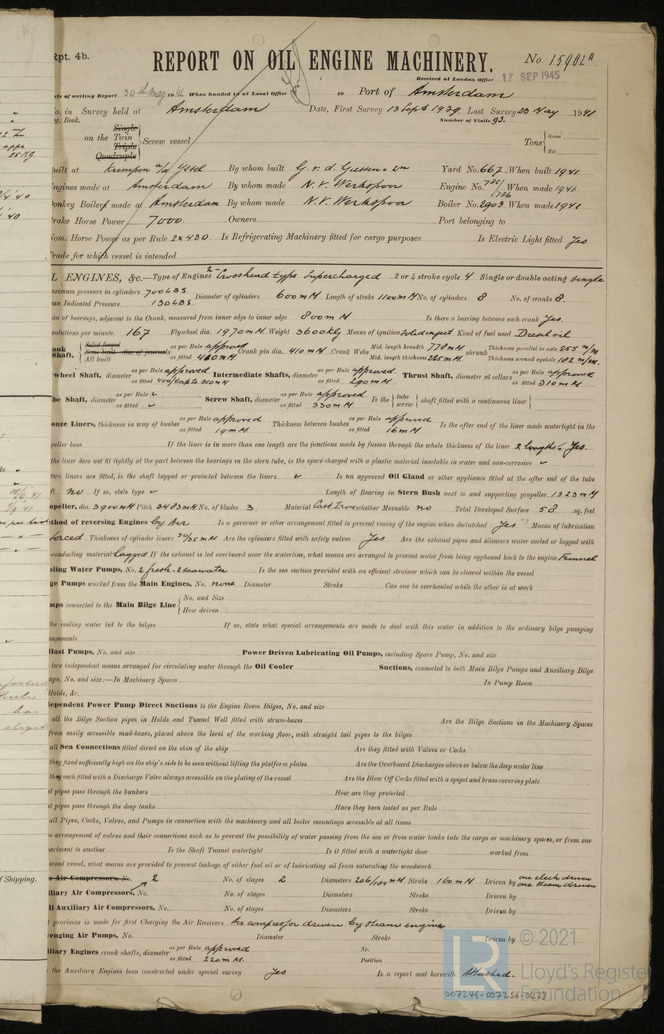 Rpt. 4b.
REPORT ON OIL ENGINE MACHINERY.
No. 15902A
Received at London Office 17 SEP 1945
Date of writing Report 30th May 1941 When handed in at Local Office 19 Port of Amsterdam
No. in Survey held at Amsterdam Date, First Survey 13 Sept 1939 Last Survey 23 May 1941
Book. Number of Visits 92.
Single
on the Twin
Triple
Quadruple
Screw vessel
Tons Gross
Net
Built at Krimpen a/d Yssel By whom built G. v. d. Giessen & Zn Yard No. 667 When built 1941
Engines made at Amsterdam By whom made N.V. Werkspoor Engine No. 785/786 When made 1941
Donkey Boilers made at Amsterdam By whom made N.V. Werkspoor Boiler No. 2903 When made 1941
Brake Horse Power 7000 Owners Port belonging to
Nom. Horse Power as per Rule 2x430 Is Refrigerating Machinery fitted for cargo purposes Is Electric Light fitted Yes
Trade for which vessel is intended
OIL ENGINES, &c.—Type of Engines 2- Crosshead type Supercharged 2 or 4 stroke cycle 4 Single or double acting single
Maximum pressure in cylinders 700 LBS Diameter of cylinders 600 mM Length of stroke 1100 mM No. of cylinders 8 No. of cranks 8.
Mean Indicated Pressure 130 LBS.
Span of bearings, adjacent to the Crank, measured from inner edge to inner edge 800 mM Is there a bearing between each crank Yes.
Revolutions per minute 167 Flywheel dia. 1970 mM Weight 3600 kg Means of ignition Solid inject Kind of fuel used Diesel oil
Crank Shaft, Solid forged Semi built All built as per Rule approved as fitted 410 mM Crank pin dia. 410 mM Crank Webs Mid. length breadth 770 mM Mid. length thickness 255 mM shrunk Thickness parallel to axis 255 m/m Thickness around eyehole 182 m/m.
Flywheel Shaft, diameter as per Rule approved as fitted Intermediate Shafts, diameter as per Rule approved as fitted 290 mM Thrust Shaft, diameter at collars as per Rule approved as fitted 310 mM
Tube Shaft, diameter as per Rule as fitted Screw Shaft, diameter as per Rule approved as fitted 330 mM Is the tube screw shaft fitted with a continuous liner
Bronze Liners, thickness in way of bushes as per Rule approved as fitted 19 mM Thickness between bushes as per Rule approved as fitted 16 mM Is the after end of the liner made watertight in the
propeller boss If the liner is in more than one length are the junctions made by fusion through the whole thickness of the liner 2 lengths Yes.
If the liner does not fit tightly at the part between the bearings in the stern tube, is the space charged with a plastic material insoluble in water and non-corrosive
If two liners are fitted, is the shaft lapped or protected between the liners Is an approved Oil Gland or other appliance fitted at the after end of the tube
shaft no If so, state type Length of Bearing in Stern Bush next to and supporting propeller 1323 mM
Propeller, dia. 3900 mM Pitch 3403 mM No. of blades 3. Material Cast Iron whether Moveable no Total Developed Surface 58 sq. feet
Method of reversing Engines by Air Is a governor or other arrangement fitted to prevent racing of the engine when declutched Yes Means of lubrication
Forced Thickness of cylinder liners 50/35 mM Are the cylinders fitted with safety valves Yes Are the exhaust pipes and silencers water cooled or lagged with
non-conducting material lagged If the exhaust is led overboard near the waterline, what means are arranged to prevent water from being syphoned back to the engine Funnel
Cooling Water Pumps, No. 2 fresh. 2 seawater Is the sea suction provided with an efficient strainer which can be cleared within the vessel
Bilge Pumps worked from the Main Engines, No. none Diameter Stroke Can one be overhauled while the other is at work
Pumps connected to the Main Bilge Line No. and Size
How driven
Is the cooling water led to the bilges If so, state what special arrangements are made to deal with this water in addition to the ordinary bilge pumping
arrangements
Ballast Pumps, No. and size Power Driven Lubricating Oil Pumps, including Spare Pump, No. and size
Are two independent means arranged for circulating water through the Oil Cooler Suctions, connected to both Main Bilge Pumps and Auxiliary Bilge
Pumps, No. and size:—In Machinery Spaces In Pump Room
In Holds, &c.
Independent Power Pump Direct Suctions to the Engine Room Bilges, No. and size
Are all the Bilge Suction pipes in Holds and Tunnel Well fitted with strum-boxes Are the Bilge Suctions in the Machinery Spaces
led from easily accessible mud-boxes, placed above the level of the working floor, with straight tail pipes to the bilges
Are all Sea Connections fitted direct on the skin of the ship Are they fitted with Valves or Cocks
Are they fixed sufficiently high on the ship's side to be seen without lifting the platform plates Are the Overboard Discharges above or below the deep water line
Are they each fitted with a Discharge Valve always accessible on the plating of the vessel Are the Blow Off Cocks fitted with a spigot and brass covering plate
What pipes pass through the bunkers How are they protected
What pipes pass through the deep tanks Have they been tested as per Rule
Are all Pipes, Cocks, Valves, and Pumps in connection with the machinery and all boiler mountings accessible at all times
Is the arrangement of valves and their connections such as to prevent the possibility of water passing from the sea or from water tanks into the cargo or machinery spaces, or from one
compartment to another Is the Shaft Tunnel watertight Is it fitted with a watertight door worked from
If a wood vessel, what means are provided to prevent leakage of either fuel oil or of lubricating oil from saturating the woodwork
Main Air Compressors, No. 2 No. of stages 2 Diameters 206/184 mM Stroke 160 mM Driven by one elect. driven one steam driven
Auxiliary Air Compressors, No. No. of stages Diameters Stroke Driven by
Small Auxiliary Air Compressors, No. No. of stages Diameters Stroke Driven by
What provision is made for first Charging the Air Receivers Air compressor driven by steam engine
Scavenging Air Pumps, No. Diameter Stroke Driven by
Auxiliary Engines crank shafts, diameter as per Rule approved as fitted 220 mM. No. Position
Have the Auxiliary Engines been constructed under special survey Yes Is a report sent herewith Attached.
of Shipping.
LR
© 2021
Lloyd's Register
Foundation
007248-007256-0223